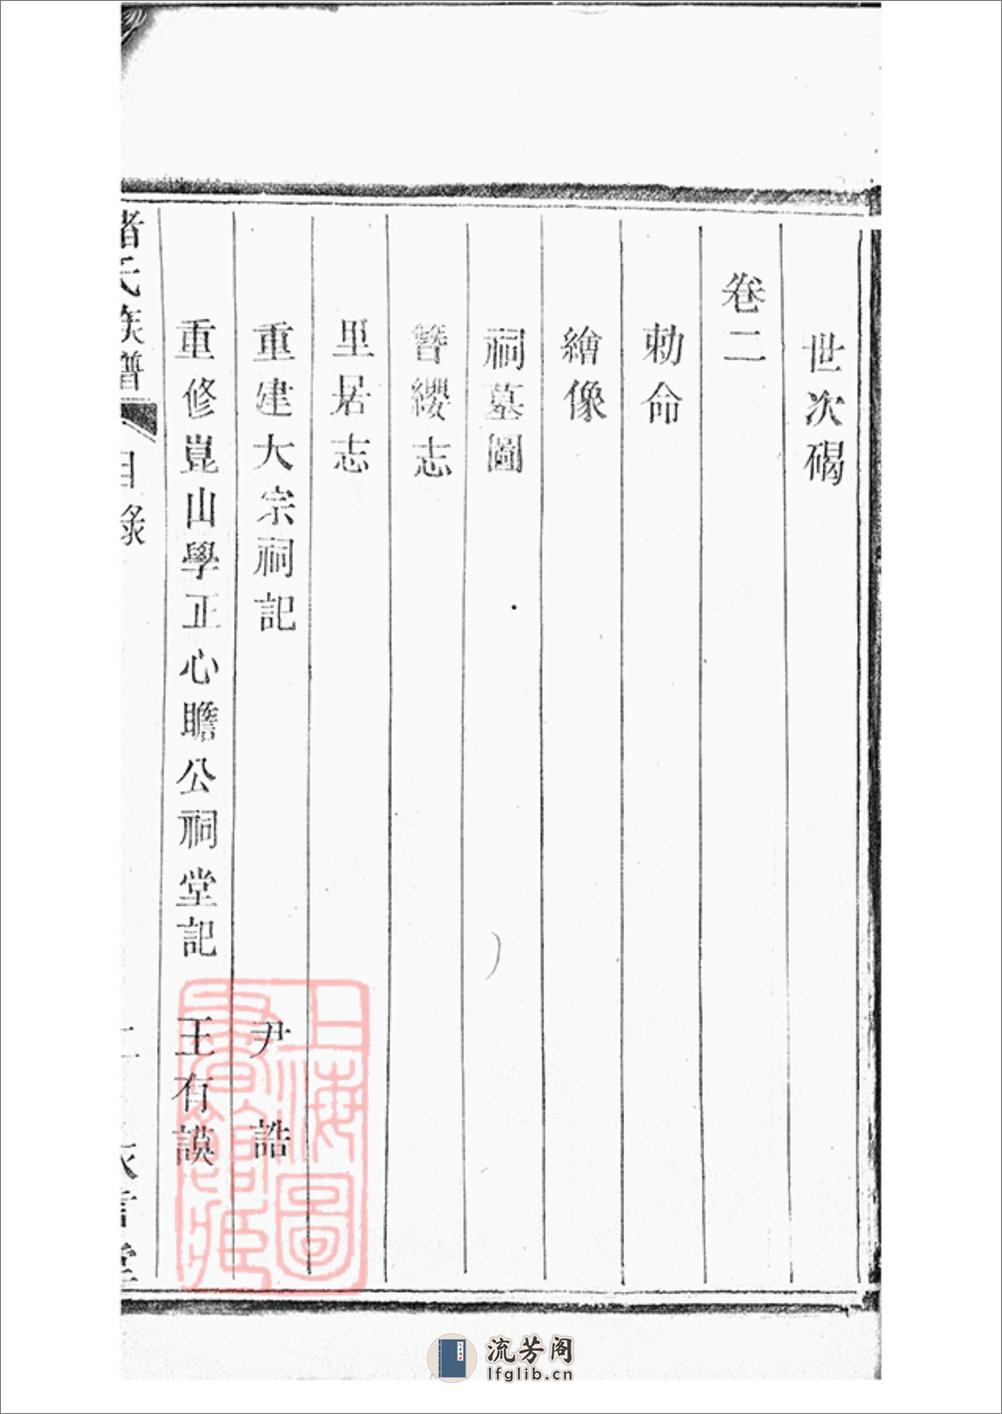 世次碣
卷二
勅命
繪像
祠墓圖
簪纓志
里居志
重建大宗祠記 尹誥
重修崑山學正心瞻公祠堂記 王有謨
氏族譜 目錄
上海圖書館藏
流芳阁
lfglib.cn